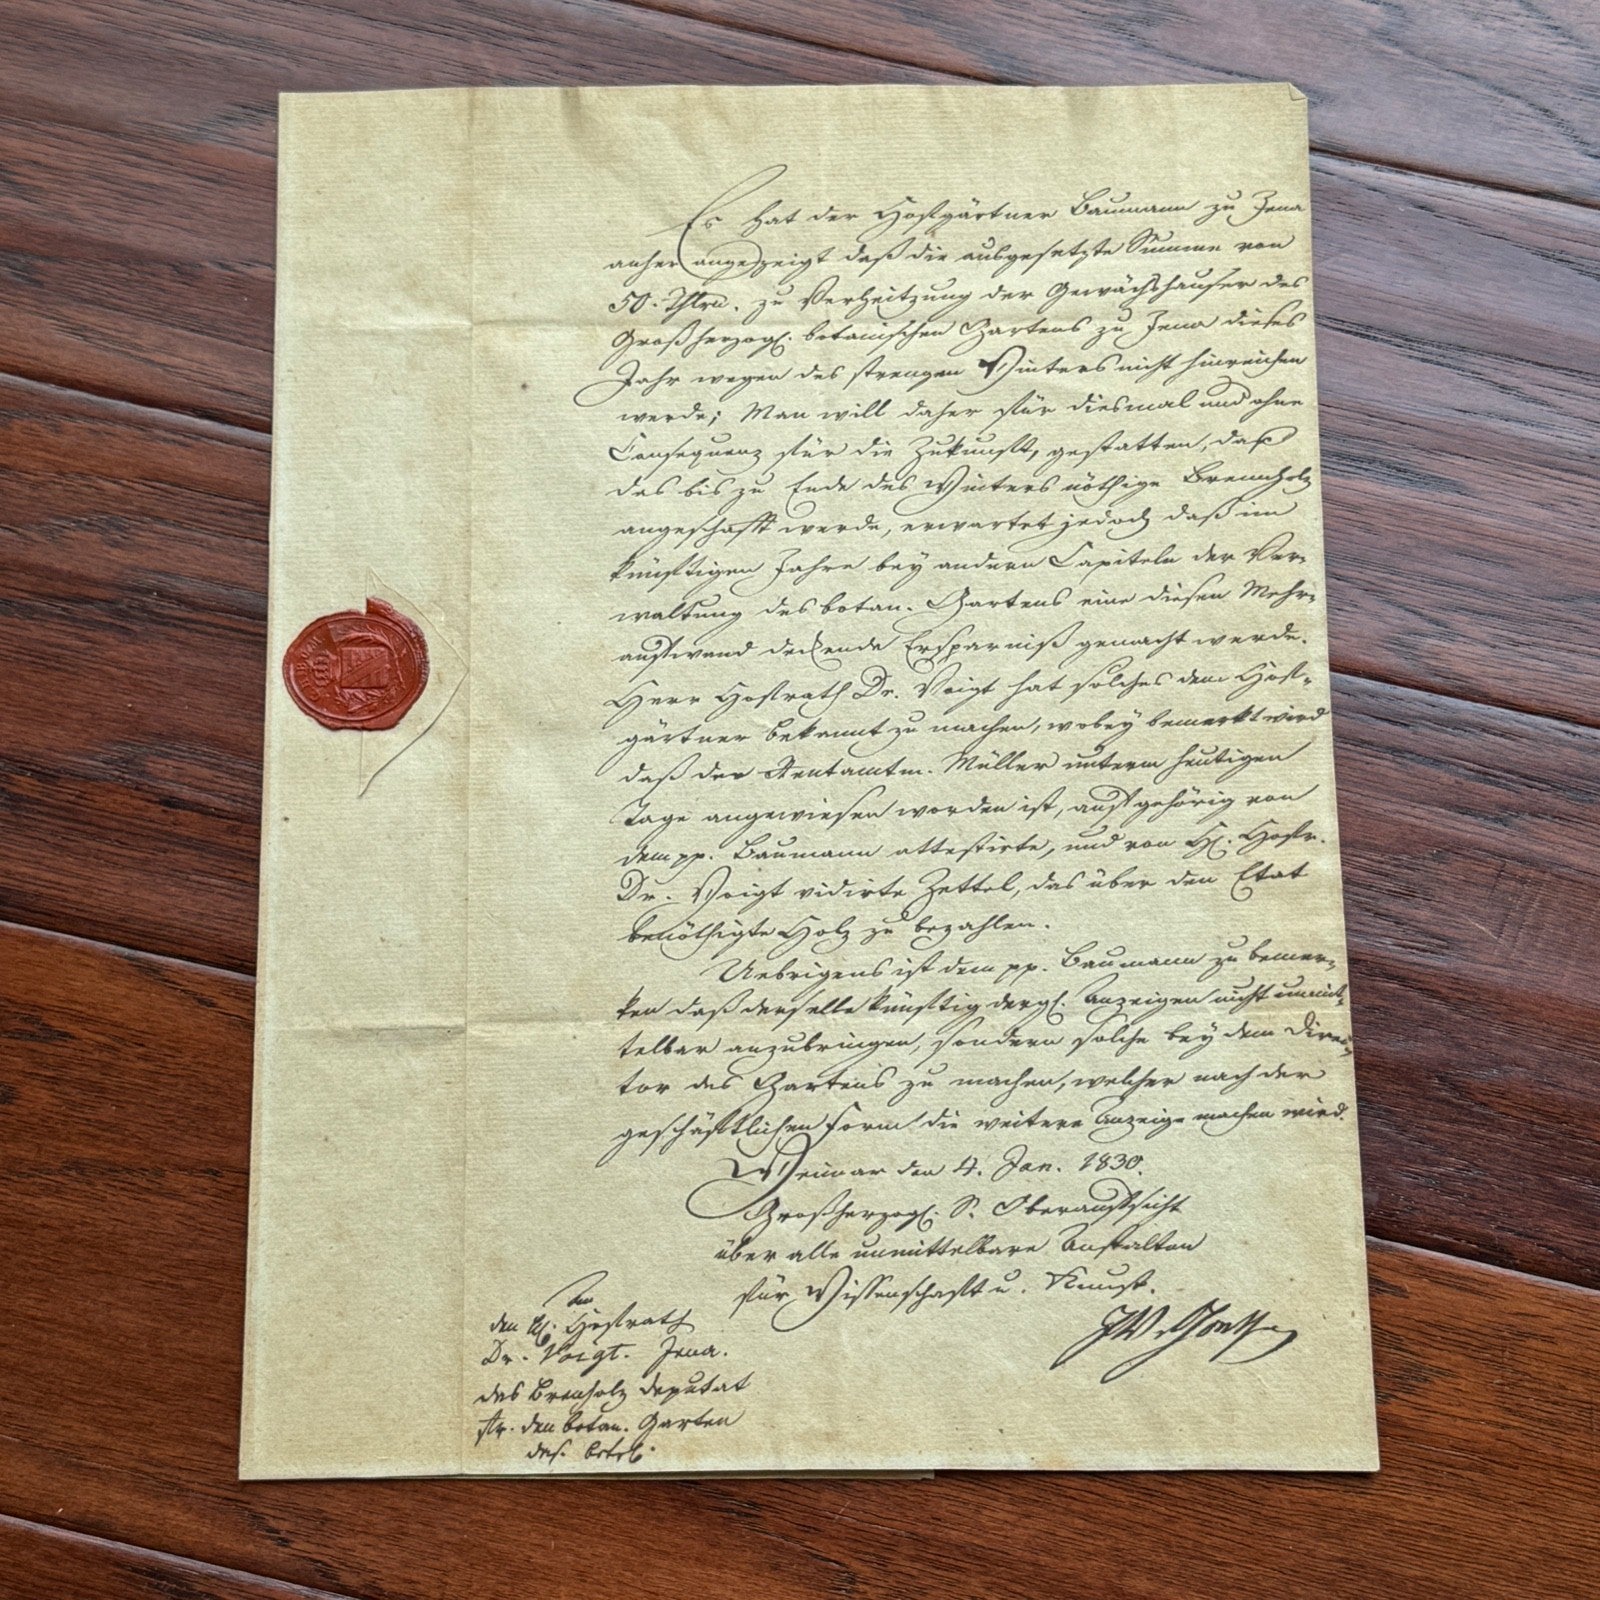 Es hat der Hofgärtner Baumann zu Jena
anher angezeigt daß die ausgesetzte Summe von
50. Thlrn. zu Verheitzung der Gewächshauser des
Großherzogl. botanischen Gartens zu Jena dieses
Jahr wegen des strengen Winters nicht hinreichen
werde; Man will daher für diesmal und ohne
Consequenz für die Zukunft, gestatten, daß
das bis zu Ende des Winters nöthige Brennholz
angeschafft werde, erwartet jedoch daß im
künftigen Jahre bey andern Capiteln der Ver-
waltung des botan. Gartens eine diesen Mehr-
aufwand deckende Ersparniß gemacht werde.
Herr Hofrath Dr. Voigt hat solches dem Hof-
gärtner bekannt zu machen, wobey bemerkt wird
daß der Rentamtm. Müller unterm heutigen
Tage angewiesen worden ist, auf gehörig von
dem pp. Baumann attestirte, und von H. Hofr.
Dr. Voigt vidirte Zettel, das über den Etat
benöthigte Holz zu bezahlen.
Uebrigens ist dem pp. Baumann zu bemer-
ken daß derselbe künftig dergl. Anzeigen nicht unmit-
telbar anzubringen, sondern solche bey dem Direc-
tor des Gartens zu machen, welcher nach der
geschäftlichen Form die weitere Anzeige machen wird.
Weimar den 4. Jan. 1830.
Großherzogl. S. Oberaufsicht
über alle unmittelbare Anstalten
für Wissenschaft u. Kunst.
JWvGoethe
An
den H. Hofrath
Dr. Voigt. Jena.
das Brenholz deputat
fr. den botan. Garten
das. betrl.